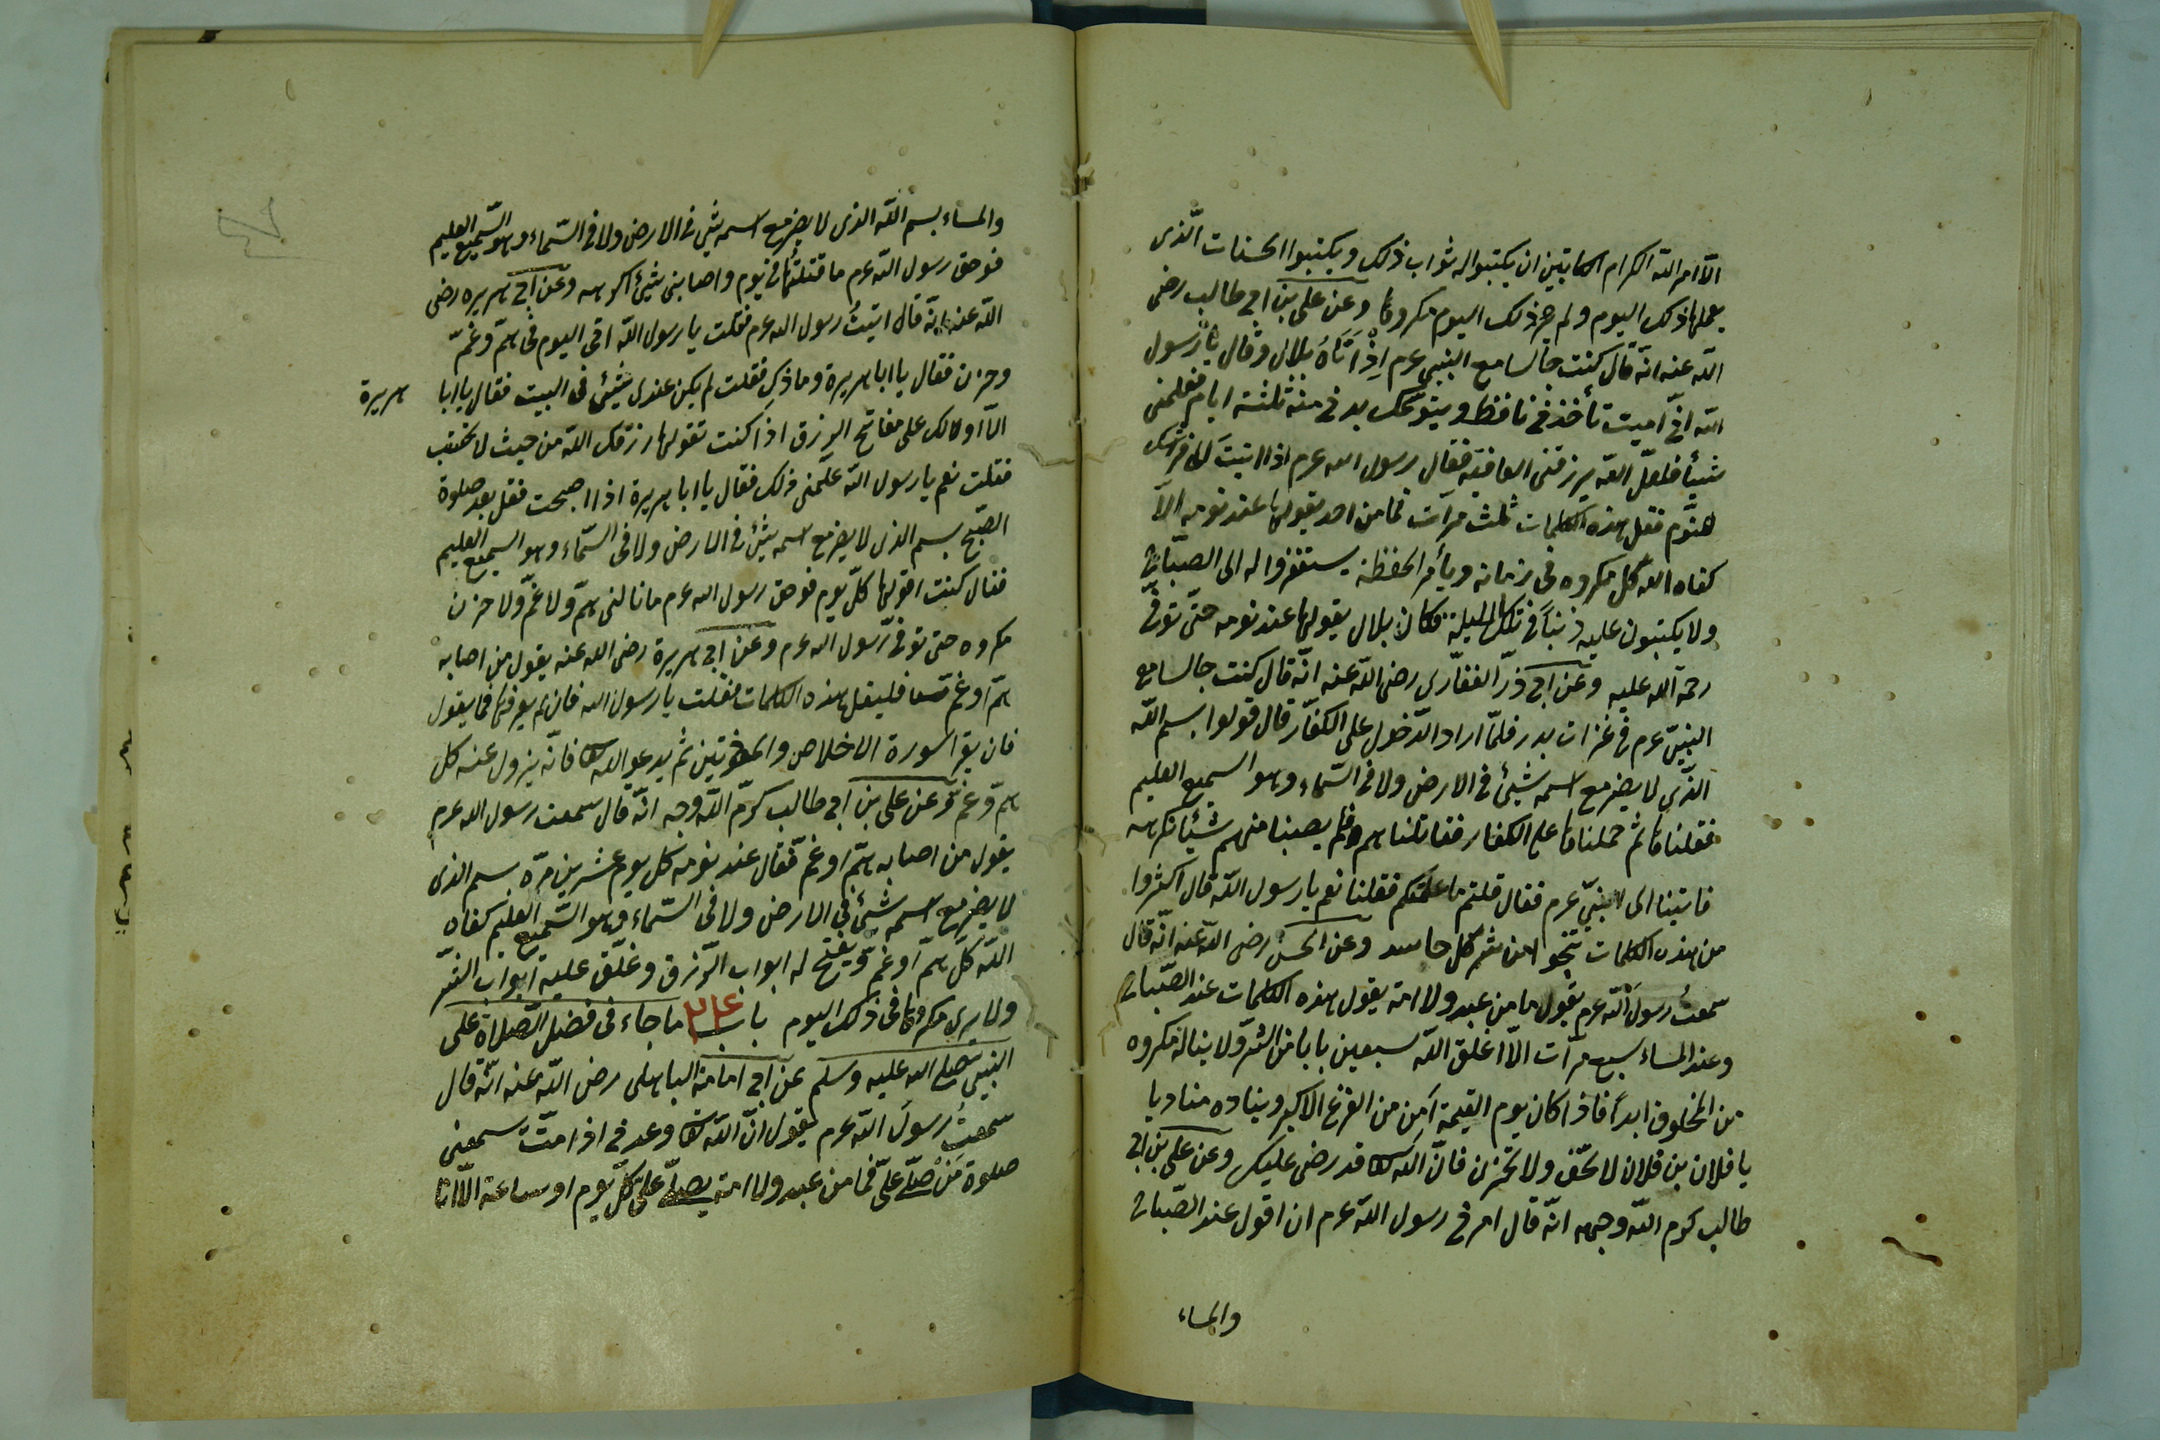 الا امر الله الكرام الكاتبين ان يكتبوا له ثواب ذلك ويكتبوا الحسنات الّذى
يعملها ذلك اليوم ولم ير ذلك اليوم مكروها وعن على بن ابى طالب رضى
الله عنه انّه قال كنت جالسا مع النبى عرم اِذْ اَتَاهُ بلال وقال يا رسول
الله انّى اميت تأخذنى نافظ ويتوعّك بدنى منه ثلثة ايام فعلمنى
شيأ فلعلّ الله يرزقنى العافية فقال رسول الله عرم اذا اتيت الى فرشك
للنوم فقل هذه الكلمات ثلث مرّات فما من احد يقولها عند نومه الّا
كفاه الله كل مكروه فى زمانه ويأمر الحفظة يستغفروا له الى الصّباح
ولا يكتبون عليه ذنبًا فى تلك الليلة فكان بلال يقولها عند نومه حتّى توفّى
رحمة الله عليه وعن ابى ذرّ الغفّارى رضى الله عنه انّه قال كنت جالسا مع
النبىّ عرم فى غزات بدر فلمّا اراد الدّخول على الكفّار قال قولوا بسم الله
الذى لا يضر مع اسمه شيئ فى الارض ولا فى السّماء وهو السميع العليم
فقلناها ثم حملناها على الكفار فقاتلناهم ولم يصبنا منهم شيئا نكرهه
فاتينا الى النبىّ عرم فقال قلتم ما علّمتكم فقلنا نعم يا رسول الله قال اكثروا
من هذه الكلمات تنجوا من شر كل حاسد وعن الحسن رضى الله عنه انّه قال
سمعتُ رسولَ الله عرم يقول ما من عبد ولا امة يقول هذه الكلمات عند الصّباح
وعند المساء سبع مرّات الّا اغلق الله سبعين بابا من الشرّ ولا يناله مكروه
من المخلوق ابدًا فاذا كان يوم القيمة آمن من الفزع الاكبر ويناده مناديا
يا فلان بن فلان لا تخف ولا تحزن فانّ الله تعا قد رضى عليك وعن على بن ابى
طالب كرم الله وجهه انّه قال امرنى رسول الله عرم ان اقول عند الصّباح
والمساء
والمساء بسم الله الذى لا يضر مع اسمه شيئ فى الارض ولا فى السّماء وهو السّميع العليم
فوحق رسول الله عرم ما قتلتها فى يوم واصابنى شيئ اكرهه وعن ابى هريره رضى
الله عنه انّه قال اتيتُ رسول الله عرم فقلت يا رسول الله انى اليوم فى همّ وغمّ
وحزن فقال يا ابا هريرة وما ذك فقلت لم يكن عندى شيئ فى البيت فقال يا ابا هريرة
الا ادلك على مفاتح الرزق اذا كنت تقولها رزقك الله من حيث لا تحتسب
فقلت نعم يا رسول الله علّمنى ذلك فقال يا ابا هريرة اذا اصبحت فقل بعد صلوة
الصّبح بسم الذى لا يضر مع اسمه شيئ فى الارض ولا فى السّماء وهو السميع العليم
فقال كنت اقولها كلّ يوم فوحق رسول الله عرم ما نالنى همّ ولا غمّ ولا حزن
مكروه حتى توفى رسول الله عرم وعن ابى هريرة رضى الله عنه يقول من اصابه
همّ او غم فليقل هذه الكلمات فقلت يا رسول الله فان لم يعرفها فما يقول
فان يقرا سورة الاخلاص والمعوذتين ثم يدعو الله تعا فانّه يزول عنه كل
همّ وغمّ وعن على بن ابى طالب كرّم الله وجه انّه قال سمعت رسول الله عرم
يقول من اصابه همّ او غمّ فقال عند نومه كل يوم عشرين مرّه بسم الذى
لا يضر مع اسمه شيئ فى الارض ولا فى السّماء وهو السّميع العليم كفاه
الله كلّ همّ او غمّ ويفتح له ابواب الرّزق وغلّق عليه ابواب الشرّ
ولا يرى مكروها فى ذلك اليوم باب ٢٤ ما جاء فى فضل الصّلاة على
النبىّ صلى الله عليه وسلم عن ابى امامة الباهلى رضى الله عنه انّه قال
سمعتُ رسولَ الله عرم يقول انّ الله تعا وعدنى اذا متّ سمعنى
صلوة مَنْ صلّى علىّ فما من عبد ولا امة يصلّى علىّ كلّ يوم او ساعة الّا انا